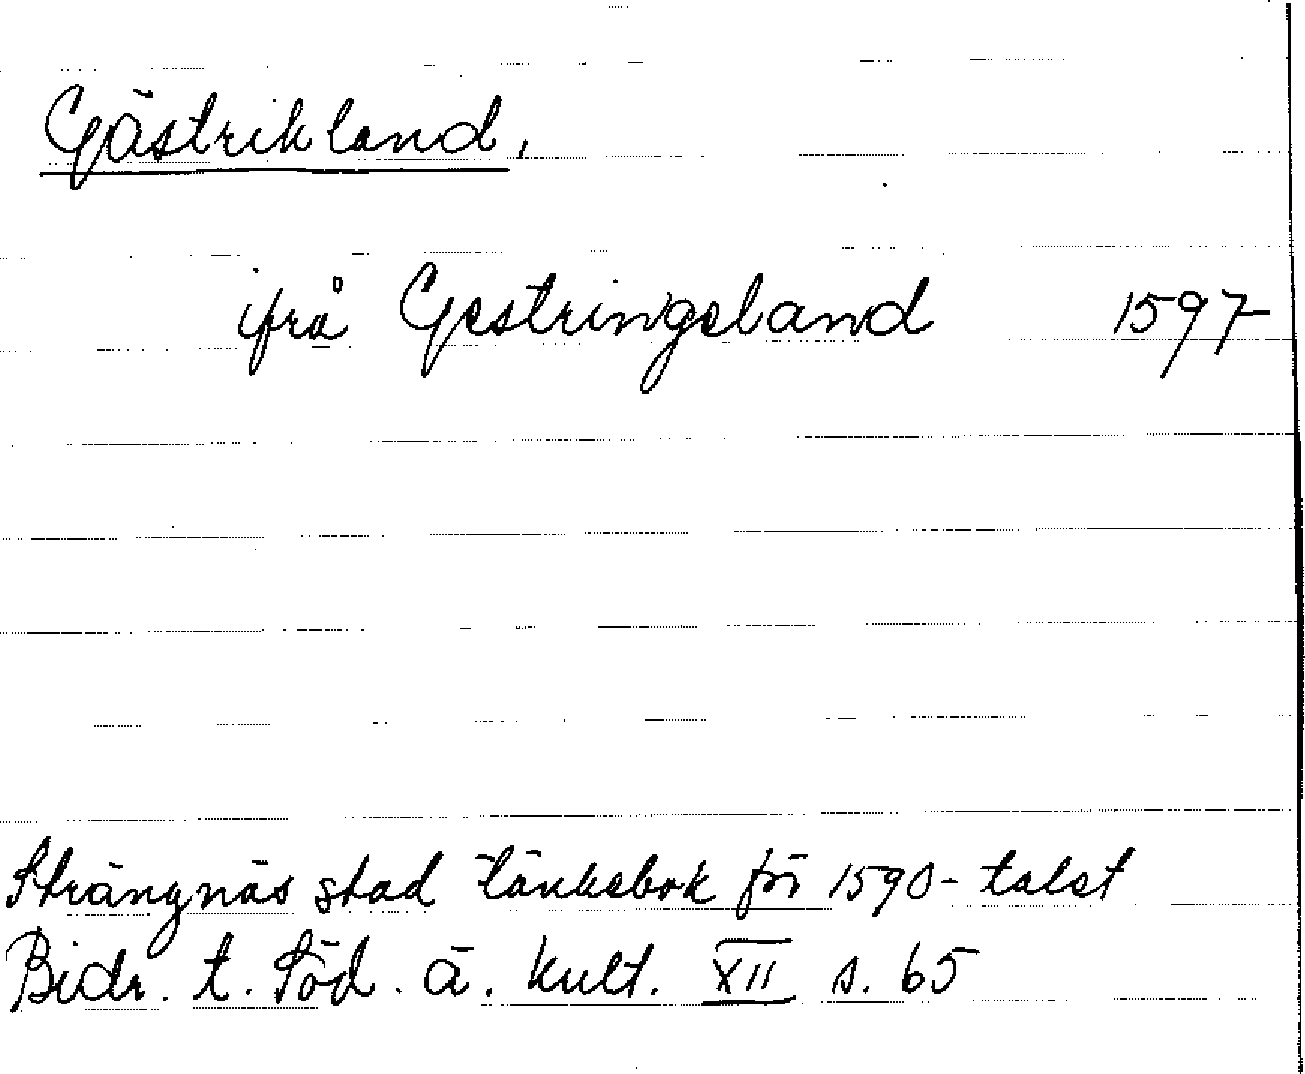 Gästrikland,
ifrå Gestringeland 1597
Strängnäs stad tänkebok för 1590-talet
Bidr. t. Söd. ä. kult. XII s. 65